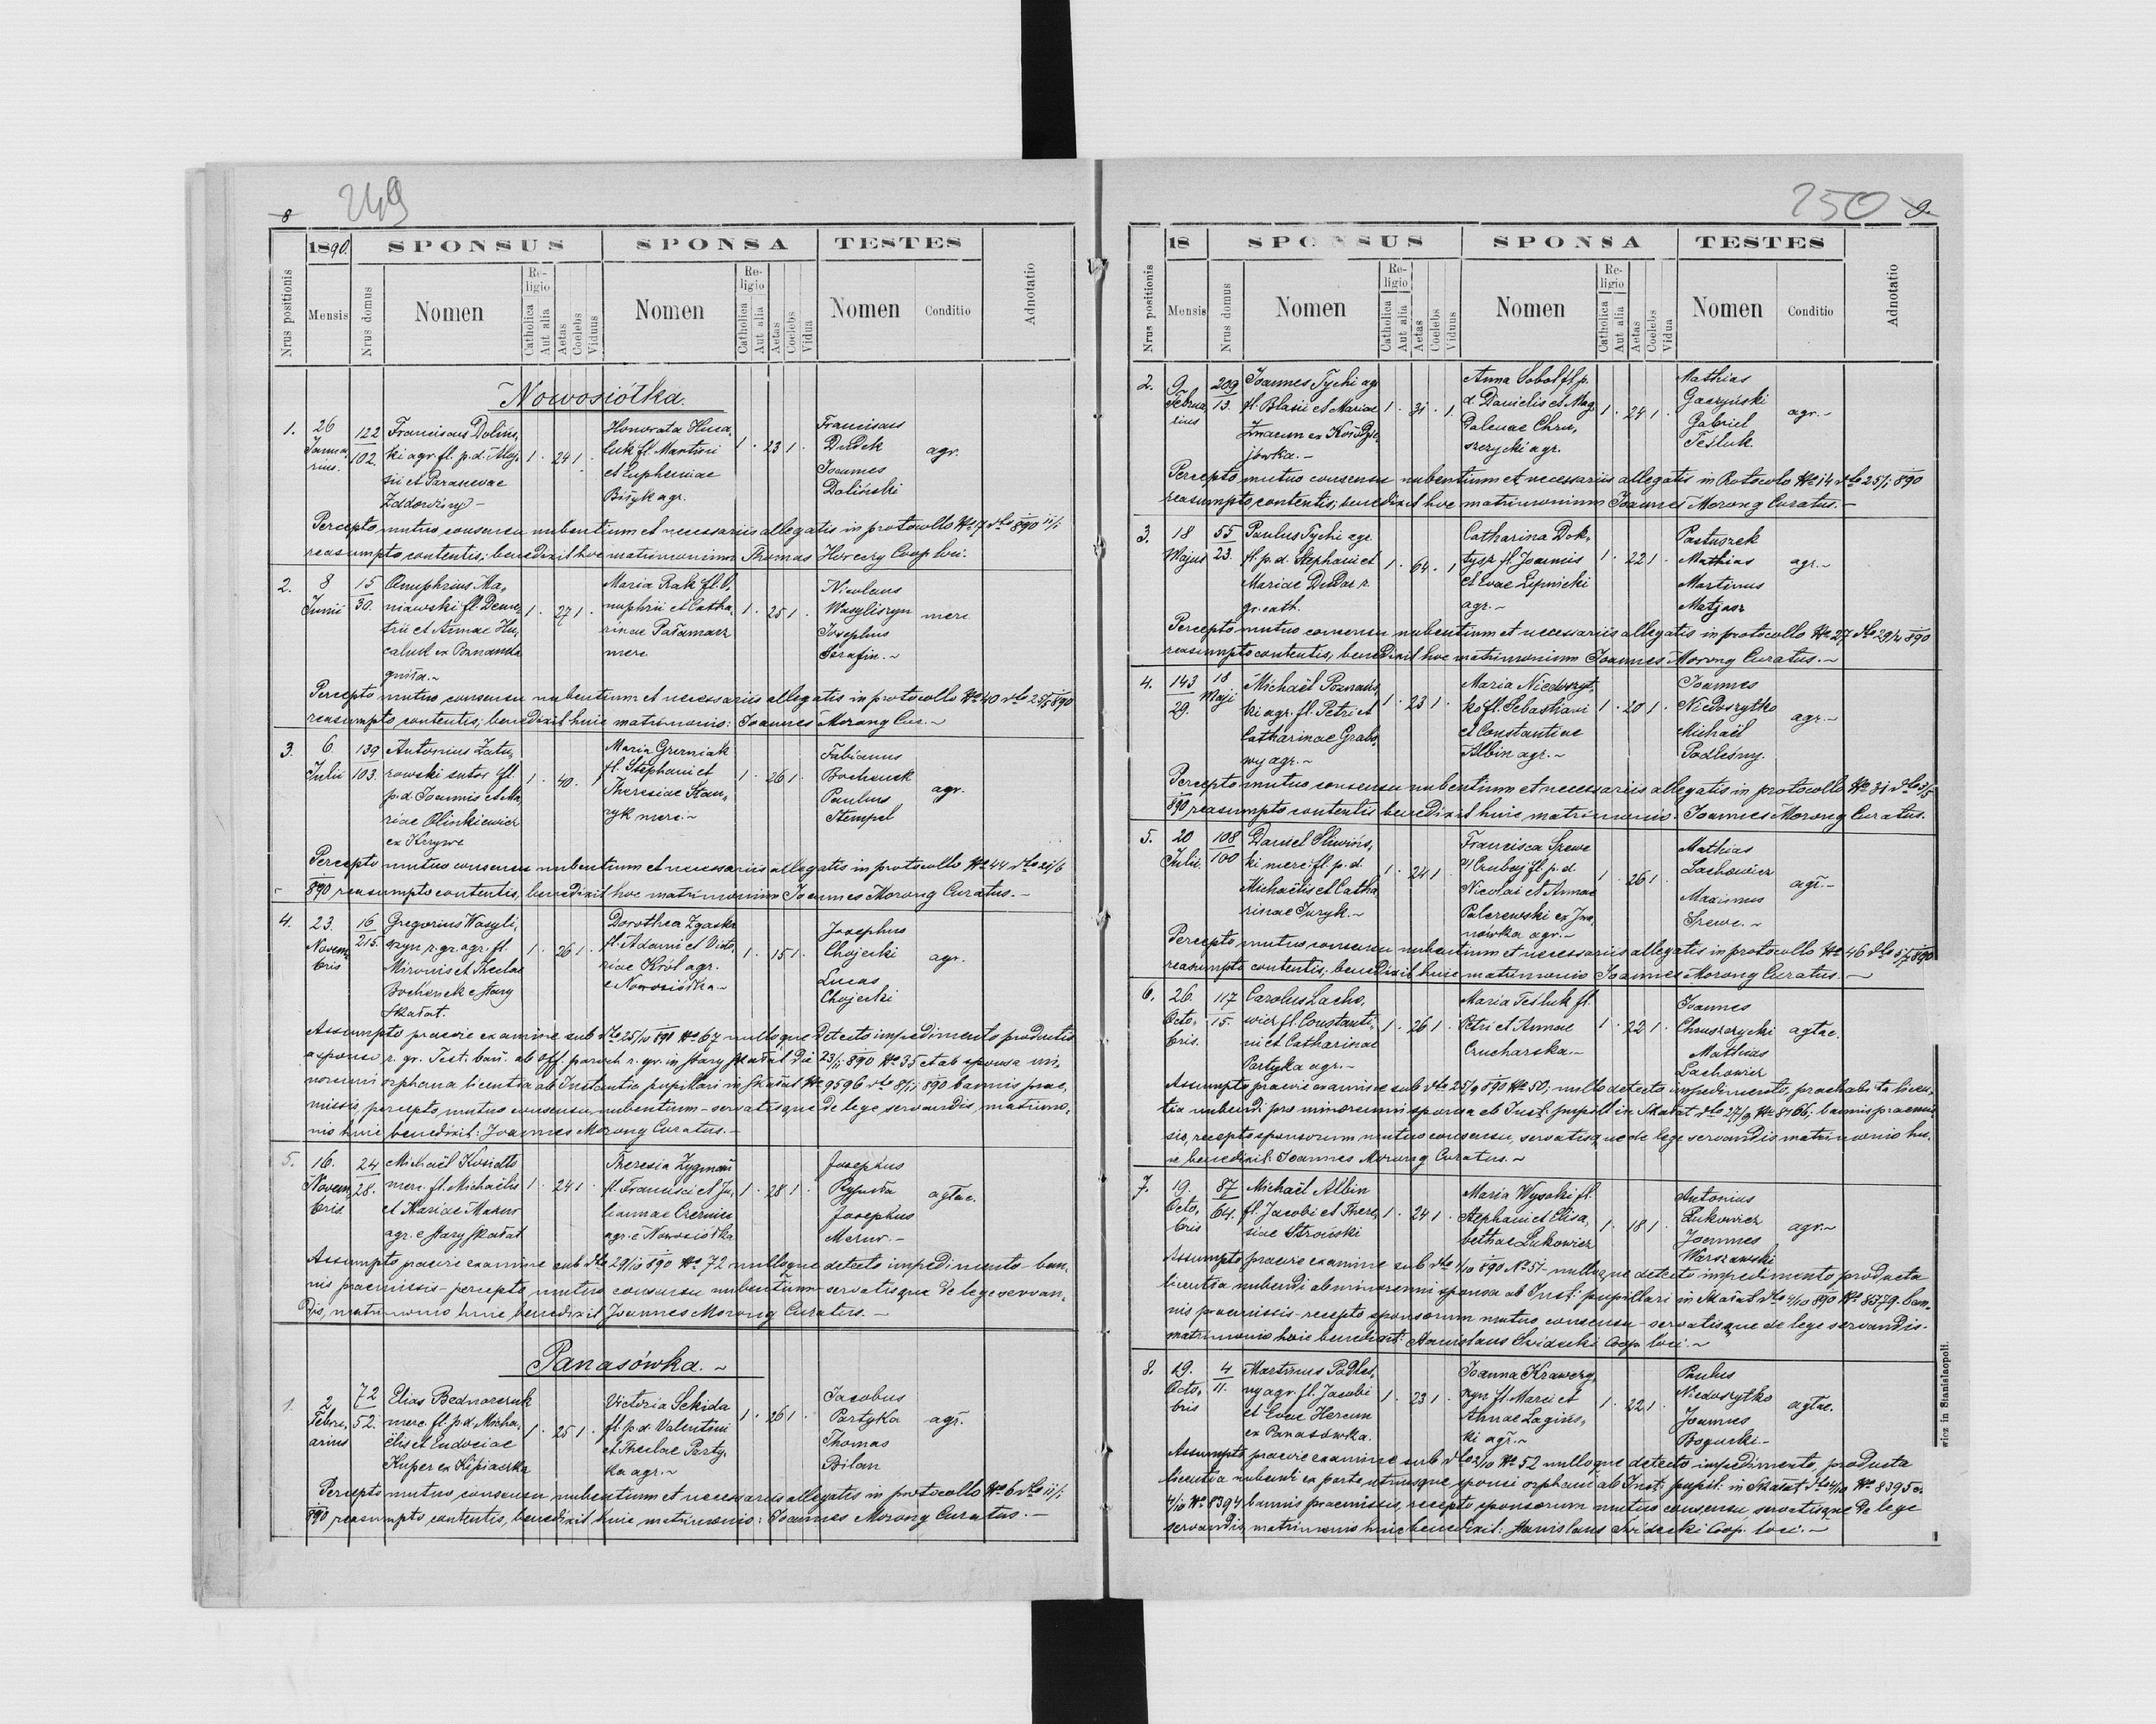 8 249
1890. SPONSUS SPONSA TESTES
Nrus positionis Mensis Nrus domus Nomen Religio Catholica Aut alia Aetas Coelebs Viduus Nomen Religio Catholica Aut alia Aetas Coelebs Vidua Nomen Conditio Adnotatio
Nowosiółka.
1. 26 Januarius. 122 102.
Franciscus Doliń,
ki agr. fl. p. d. Aloj,
sii et Parascevae
1 · 24 1 ·
Honorata
luk fl. Martini
et Eupheniae
agr.
1 · 23 1 ·
Franciscus
Dudek
Joannes
Doliński
agr.
Percepto mutuo consensu nubentium et necessariis allegatis in protocollo No 7 dto 890 11/1
reasumpto contentis; benedixit hoc matrimonium Thomas Coop loci.
2. 8 Junii 15 30.
Onuphrius Ma,
niawski fl. Deme,
trii et Annae Hu,
caluk ex
1 · 27 1 ·
Maria Rak fl. O,
nuphrii et Catha,
rinae Pałamarz
merc
1 · 25 1 ·
Nicolaus
Wasyliszyn
Josephus
Serafin. ~
merc
Percepto mutuo consensu nubentium et necessariis allegatis in protocollo No 40 dto 25/5 890
reasumpto contentis; benedixit huic matrimonio: Joannes Morong Cur. ~
3. 6 Julii 139 103.
Antonius Zatu,
rowski sutor fl.
p. d. Joannis et Ma
riae Olinkiewicz
ex Krzywe
1 · 40 ·
Maria Grzesniak
fl. Stephani et
Theresiae Stau,
ryk merc. ~
1 · 26 1 ·
Fabianus
Bochenek
Paulus
Stempel
agr.
Percepto mutuo consensu nubentium et necessariis allegatis in protocollo No 44 dto 21/6
890 reasumpto contentis, benedixit hoc matrimonium Joannes Morong Curatus. —
4. 23. Novembris 16 215.
Gregorius Wasyli,
szyn r. gr. agr. fl.
Mironis et Theclae
Bochenek e Stary
Skałat.
1 · 26 1 ·
Dorothea Zgaska
fl. Adami et Victo,
riae Król agr.
e Nowosiółka ~
1 · 15 1 ·
Josephus
Chojecki
Lucas
Chojecki
agr.
Assumpto praevie examine sub dto 25/10 890 No 67 nulloque detecto impedimento productis
a sponso r. gr. Test. ban. ab Off. paroch r. gr. in Stary Skałat die 23/11 890 No 35 et ab sponsa mi,
norenni orphana licentia ab Instantia pupillari in Skałat No 9596 dto 8/11 890 bannis prae,
missis, percepto mutuo consensu nubentium - servatisque de lege servandis, matrimo,
nio huic benedixit: Joannes Morong Curatus. —
5. 16. Novembris 24 28.
Michaël Kosidło
merc. fl. Michaëlis
et Mariae Mazur
agr. e Stary Skałat
1 · 24 1 ·
Theresia Zygmań
fl. Francisci et Ju,
liannae
agr. e Nowosiółka
1 · 28 1 ·
Josephus
Josephus
Mazur. —
agtae.
Assumpto praevie examine sub dto 29/10 890 No 72 nulloque detecto impedimento - ban,
nis praemissis - percepto mutuo consensu nubentium - servatisque de lege servan,
dis, matrimonio huic benedixit Joannes Morong Curatus. —
Panasówka. ~
1. 2 Februarius 72 52.
Elias Bednarczuk
merc. fl. p. d. Micha,
ëlis et Eudociae
Kuper ex Kipiaczka
1 · 25 1 ·
Victoria Sekida
fl. p. d. Valentini
et Theclae Party,
ka agr. ~
1 · 26 1 ·
Jacobus
Partyka
Thomas
Bilan
agr.
Percepto mutuo consensu nubentium et necessariis allegatis in protocollo No 6 dto 11/1
890 reasumpto contentis, benedixit huic matrimonio: Joannes Morong Curatus. —
250 9.
18 SPONSUS SPONSA TESTES
Nrus positionis Mensis Nrus domus Nomen Religio Catholica Aut alia Aetas Coelebs Viduus Nomen Religio Catholica Aut alia Aetas Coelebs Vidua Nomen Conditio Adnotatio
2. 9 Februarius 209 13.
Joannes Tychi agr
fl. Blasii et Mariae
1 · 31 · 1.
Anna Sobol fl. p.
d. Danielis et Mag,
dalenae Chru,
szczycki agr.
1 · 24 1 ·
Mathias
Gaczyński
Gabriel
Teśluk
agr. ~
Percepto mutuo consensu nubentium et necessariis allegatis in Protocolo No 14 dto 25/1 890
reasumpto contentis; benedixit hoc matrimonium Joannes Morong Curatus. —
3. 18 Majus 55 23.
Paulus Tychi agr
fl. p. d. Stephani et
Mariae Dudar r.
gr. cath.
1 · 64 · 1
Catharina Dok,
tysz fl. Joannis
et Evae Lipnicki
agr. ~
1 · 22 1 ·
Pastuszek
Mathias
Martinus
Matjasz
agr. ~
Percepto mutuo consensu nubentium et necessariis allegatis in protocollo No 27 dto 29/4 890
reasumpto contentis, benedixit hoc matrimonium Joannes Morong Curatus. ~
4. 143 29. 18 Maji
Michaël Poznańs,
ki agr. fl. Petri et
Catharinae Grabo,
wy agr. ~
1 · 23 1 ·
Maria Niedoszyt,
ko fl. Sebastiani
et Constantiae
Albin agr. ~
1 · 20 1 ·
Joannes
Niedoszytko
Michaël
Podleśny.
agr. ~
Percepto mutuo consensu nubentium et necessariis allegatis in protocollo No 31 dto 3/5
890 reasumpto contentis benedixit huic matrimonio. Joannes Morong Curatus.
5. 20 Julii 108 100
Daniel Śliwińs,
ki merc. fl. p. d.
Michaëlis et Catha
rinae Juryk. ~
1 · 24 1 ·
Francisca Szewc
fl. p. d.
Nicolai et Annae
Palczewski ex Iwa,
nówka agr. ~
1 · 26 1 ·
Mathias
Lachowicz
Maximus
Szewc. ~
agr. —
Percepto mutuo consensu nubentium et necessariis allegatis in protocollo No 46 dto 5/7 890
reasumpto contentis, benedixit huic matrimonio Joannes Morong Curatus. —
6. 26. Octobris. 117 15.
Carolus Lacho,
wicz fl. Constanti,
ni et Catharinae
Partyka agr. ~
1 · 26 1 ·
Maria Teśluk fl.
Petri et Annae
Crucharska. ~
1 · 22 1 ·
Joannes
Chruszczycki
Mathias
Lachowicz
agtae.
Assumpto praevie examine sub dto 25/9 890 No 50; nullo detecto impedimento, prachabita licen,
tia nubendi pro minorenni sponsa ab Inst: pupill in Skałat dto 27/9 No 8166; bannis praemis,
sis, recepto sponsorum mutuo consensu, servatisque de lege servandis matrimonio hu,
ic benedixit: Joannes Morong Curatus. ~
7. 19. Octobris 87 64.
Michaël Albin
fl. Jacobi et There,
siae Stroński
1 · 24 1 ·
Maria Wysoki fl.
Stephani et Elisa,
bethae Łukowicz
1 · 18 1 ·
Antonius
Łukowicz
Joannes
Warszawski
agr. ~
Assumpto praevie examine sub dto 4/10 890 No 51 - nulloque detecto impedimento producta
licentia nubendi ab minorenni sponsa ab Inst: pupillari in Skałat dto 4/10 890 No - ban,
nis praemissis - recepto sponsorum mutuo consensu - servatisque de lege servandis -
matrimonio huic benedixit: Stanislaus Coop. loci. ~
8. 19. Octobris 4 11.
Martinus Podleś,
ny agr. fl. Jacobi
et Evae Herem
ex Panasówka.
1 · 23 1 ·
Joanna Krawczy,
szyn fl. Marci et
Annae Zagińs,
ki agr. ~
1 · 22 1 ·
Paulus
Niedoszytko
Joannes
Bogucki. —
agtae.
Assumpto praevie examine sub dto 2/10 No 52 nulloque detecto impedimento, producta
licentia nubendi ex parte utriusque sponsi orphani ab Inst: pupil: in Skałat dto 4/10 No 8395 et
4/10 No 8394 bannis praemissis, recepto sponsorum mutuo consensu, servatisque de lege
servandis, matrimonio huic benedixit: Stanislaus Coop. loci. ~
wicz in Stanislaopoli.